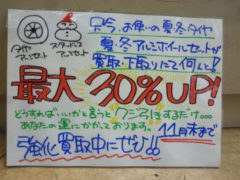 只今、お使いの夏冬タイヤ
夏・冬アルミホイールセットが
買取・下取りにて何んと!
タイヤ
アルミセット
スタッドレス
アルミセット
最大30%UP!
どうすればいいかと言うと クジ引きするだけ…
あなたの運にかかっております。
11月末まで
強化買取中にぜひ!!